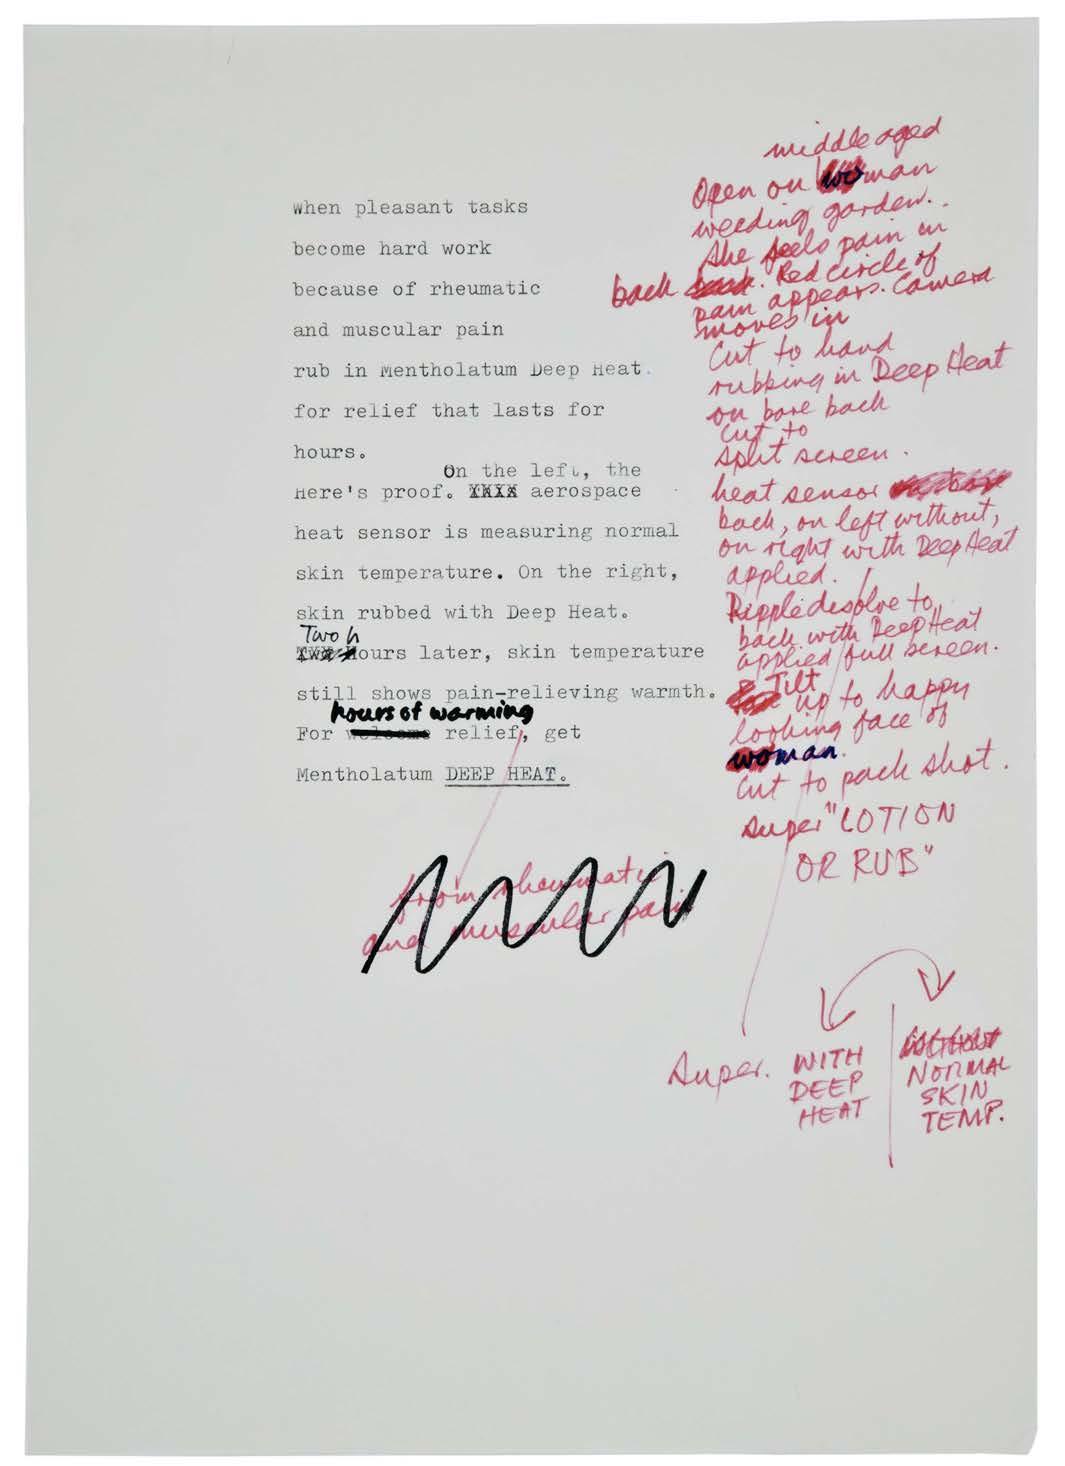 When pleasant tasks
become hard work
because of rheumatic
and muscular pain
rub in Mentholatum Deep Heat.
for relief that lasts for
hours.
On the left, the
Here's proof. XXXX aerospace
heat sensor is measuring normal
skin temperature. On the right,
skin rubbed with Deep Heat.
Two h
Two Hours later, skin temperature
still shows pain-relieving warmth.
hours of warming
For welcome relief, get
Mentholatum DEEP HEAT.
from rheumatic
and muscular pain
middle aged
Open on woman
weeding garden..
She feels pain in
back back. Red circle of
pain appears. Camera
moves in
Cut to hand
rubbing in Deep Heat
on bare back
Cut to
split screen.
heat sensor
back, on left without,
on right with Deep Heat
applied.
Ripple disolve to
back with Deep Heat
applied full screen.
Tilt
up to happy
looking face of
woman.
Cut to pack shot.
Super "LOTION
OR RUB"
Super. WITH
DEEP
HEAT
WITHOUT
NORMAL
SKIN
TEMP.